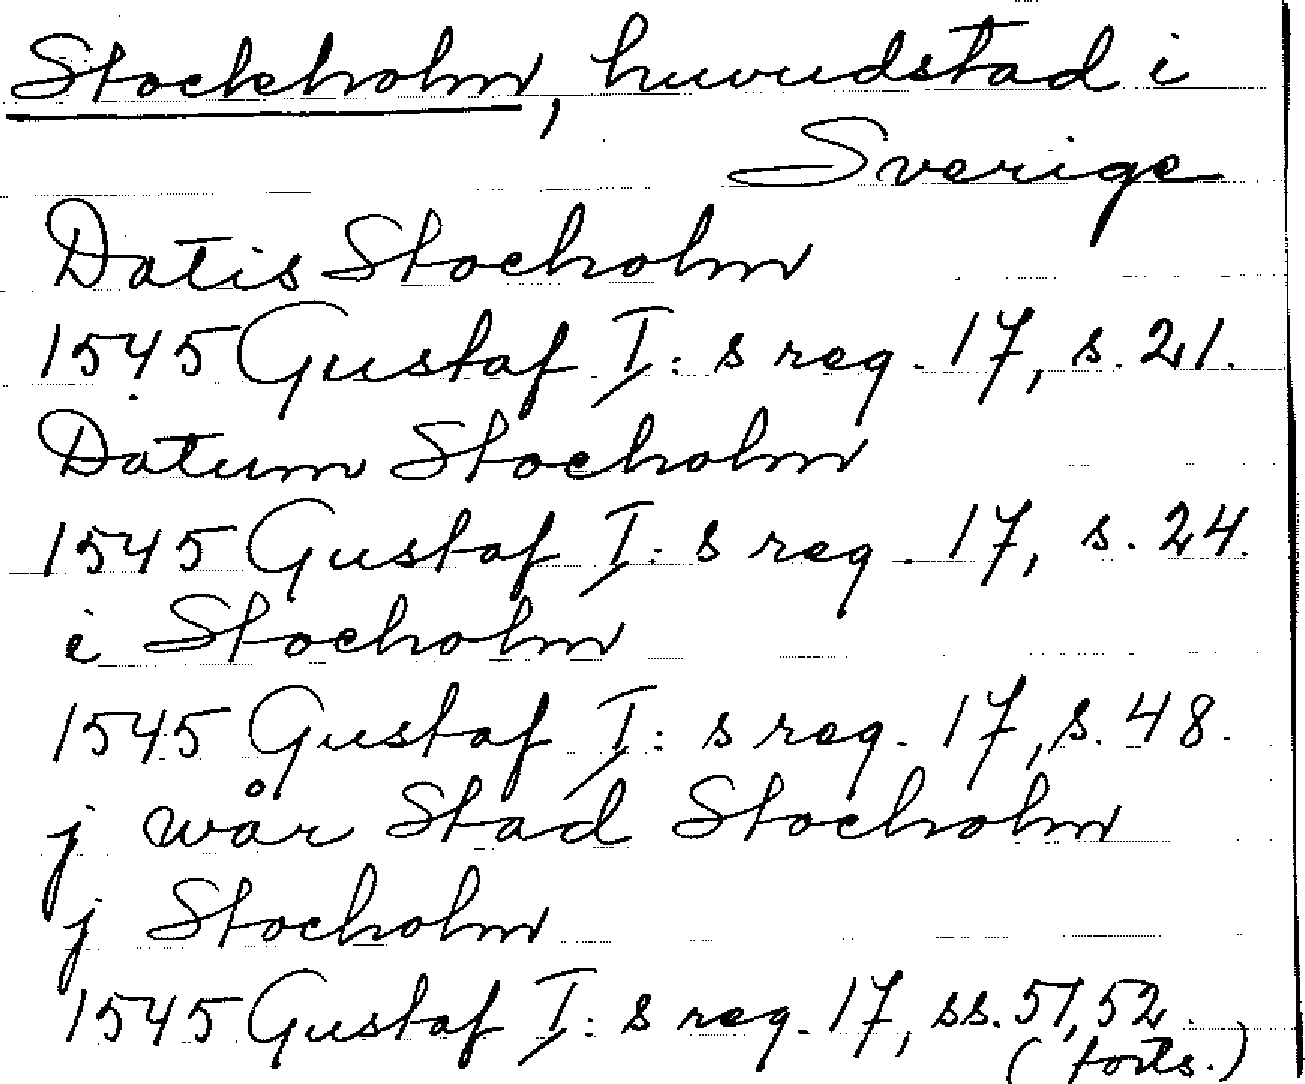 Stockholm, huvudstad i
Sverige
Datis Stocholm
1545 Gustaf I:s reg. 17, s. 21.
Datum Stocholm
1545 Gustaf I:s reg. 17, s. 24.
i Stocholm
1545 Gustaf I:s reg. 17, s. 48.
j wår Stad Stocholm
j Stocholm
1545 Gustaf I:s reg. 17, ss. 51, 52.
(forts.)